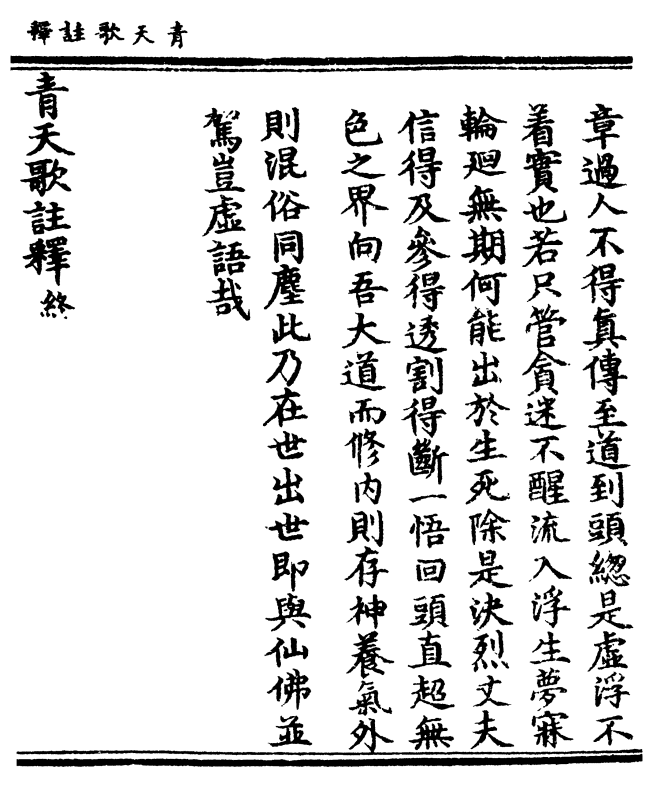 青天歌註釋
章過人不得眞傳至道到頭緫是虛浮不
着實也若只管貪迷不醒流入浮生夢寐
輪廻無期何能出於生死除是決烈丈夫
信得及參得透割得斷一悟回頭直超無
色之界向吾大道而修內則存神養氣外
則混俗同塵此乃在世出世卽與仙佛並
駕豈虛語哉
青天歌註釋終